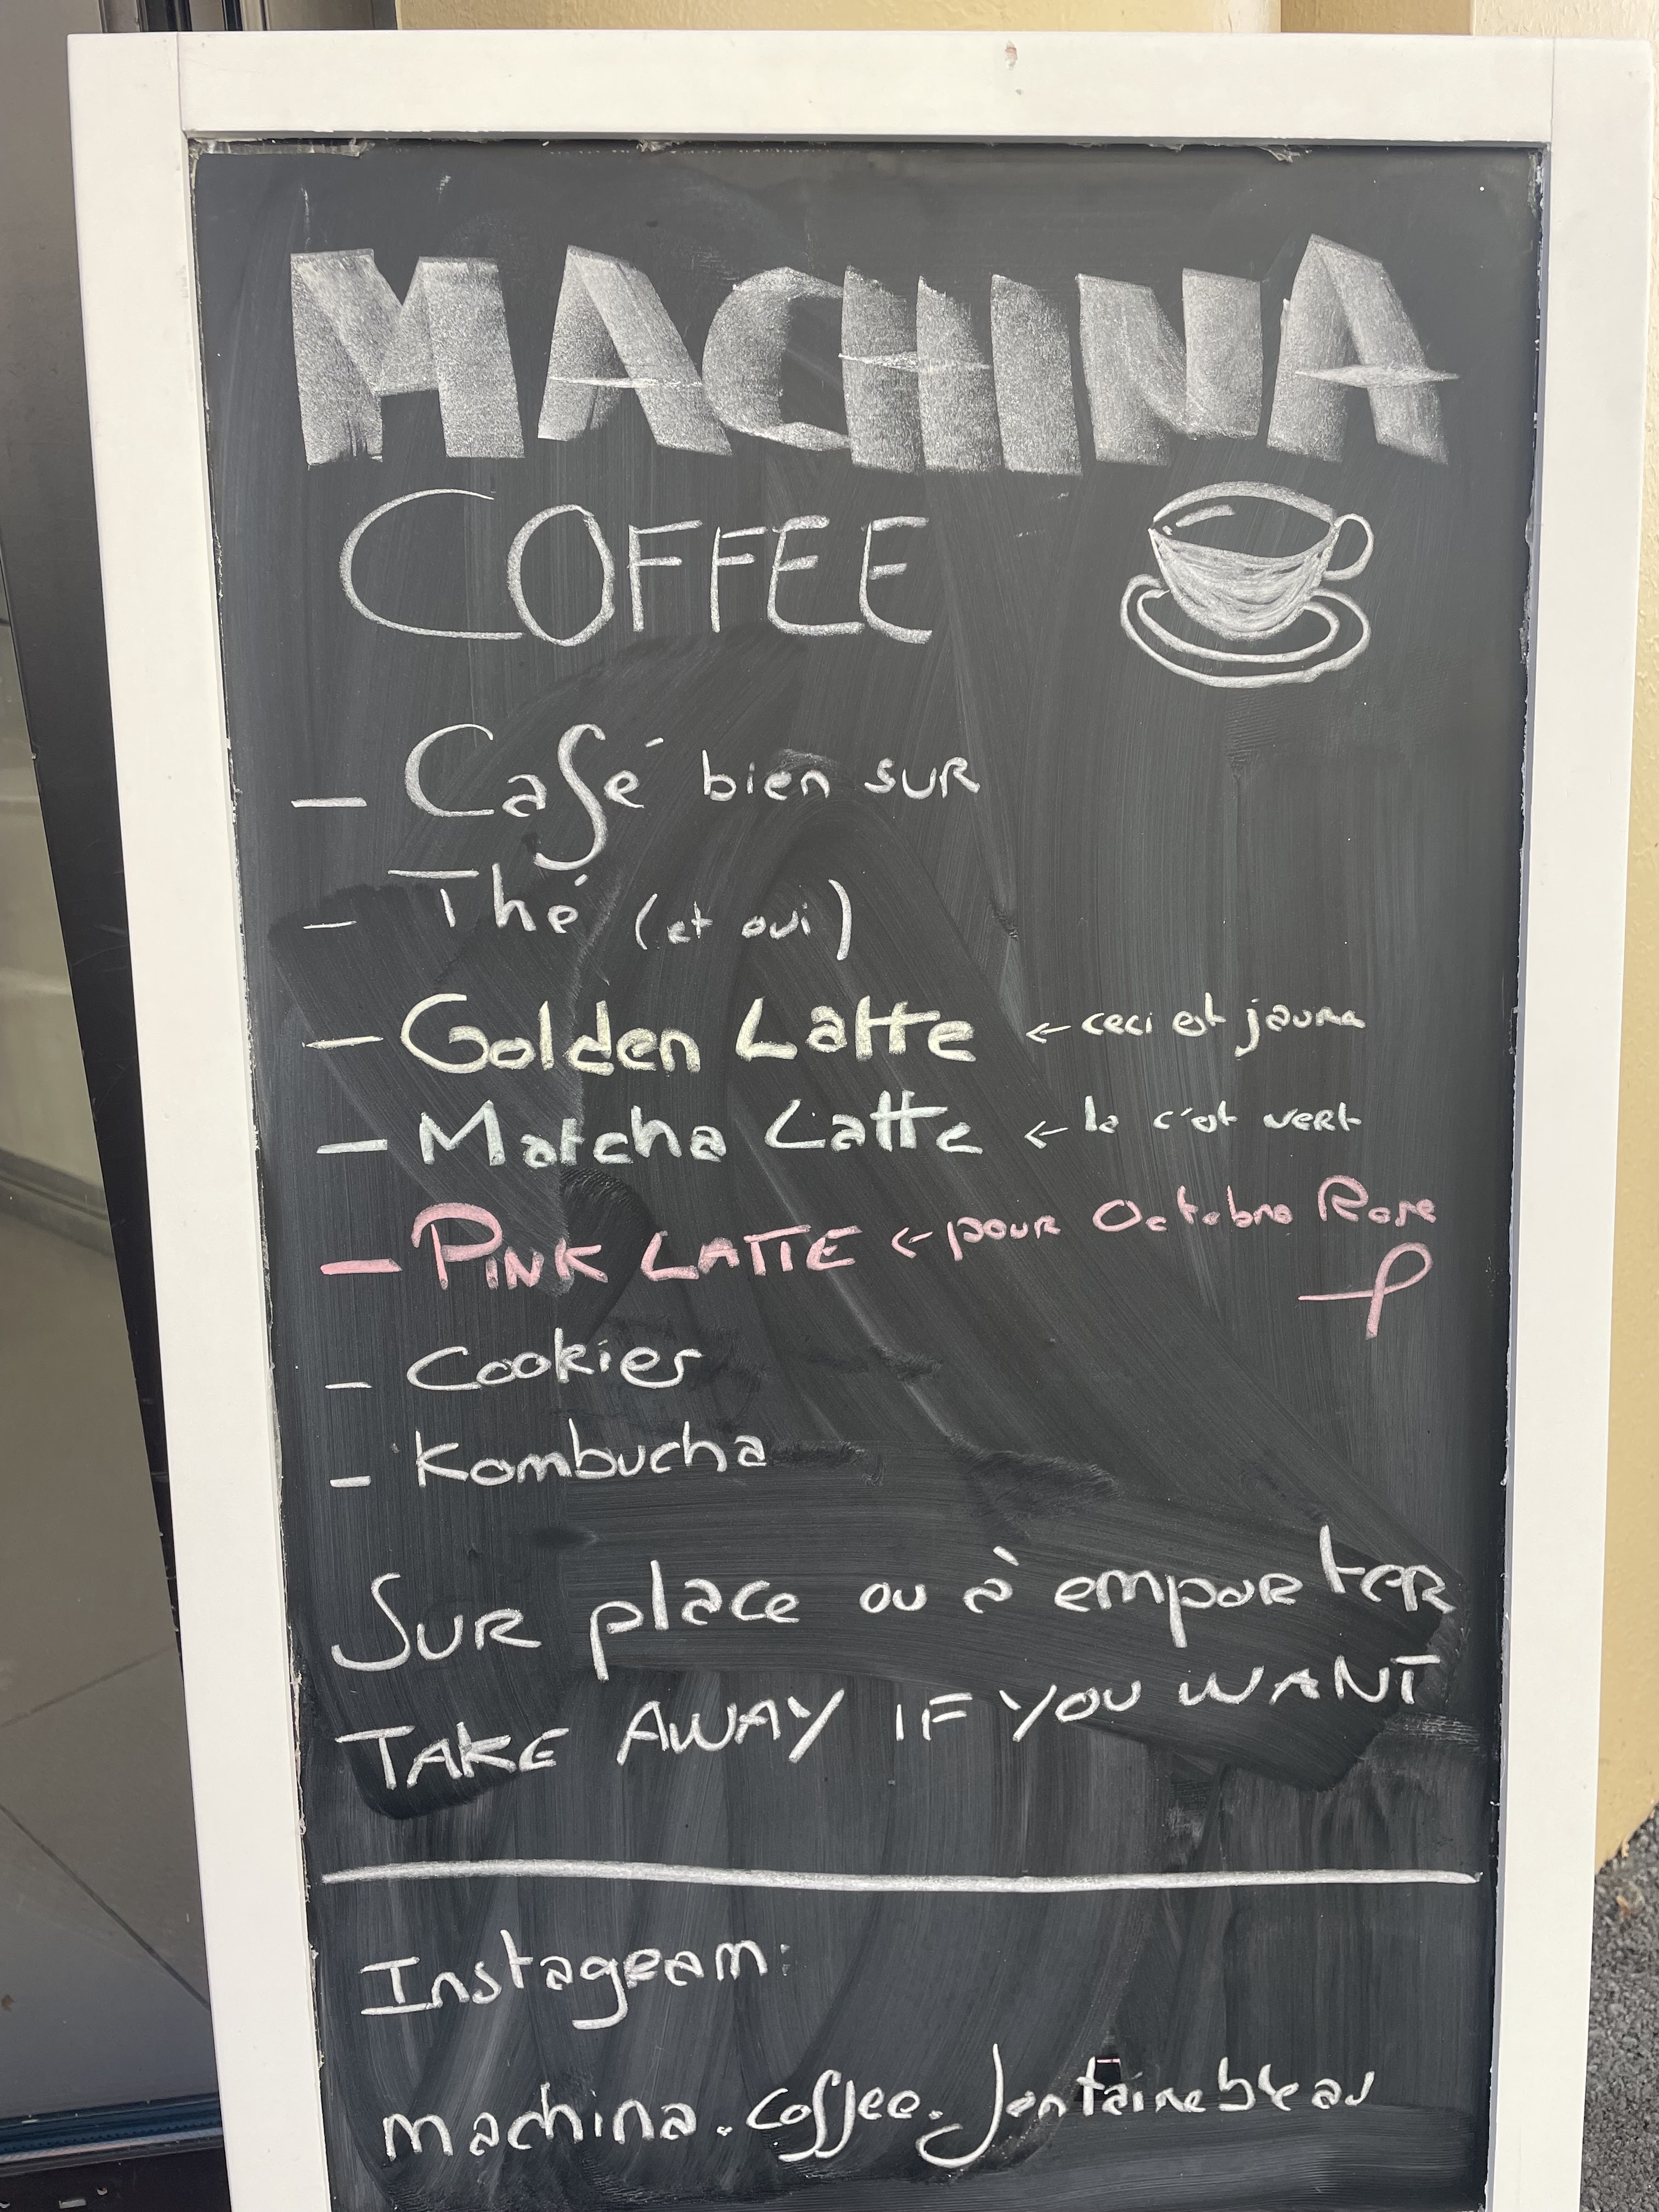 MACHINA
COFFEE
- Café bien SUR
- Thé (et oui)
- Golden Latte ← ceci est jaune
- Matcha Latte ← la c'est vert
- PINK LATTE ← pour Octobre Rose
- Cookies
- Kombucha
Sur place ou à emporter
TAKE AWAY IF YOU WANT
Instagram:
machina.coffee.fontainebleau